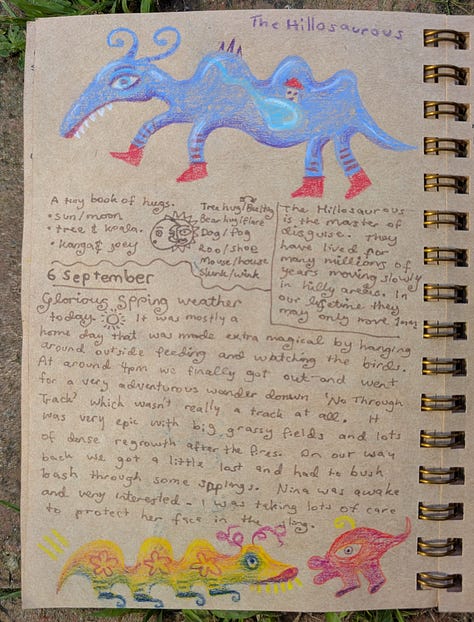 The Hillosaurous
A tiny book of hugs.
• Sun/moon
• tree & koala.
• Kanga & joey
Tree hug/
Bear hug/
Dog/fog
Roo/shoe
Mouse/house
Skunk/wink
The Hillosaurous
is the master of
disguise. They
have lived for
many millions of
years moving slowly
in hilly areas. In
our lifetime they
may only move
6 September
Glorious Spring weather
today. It was mostly a
home day that was made extra magical by hanging
around outside feeding and watching the birds.
At around 4pm we finally got out and went
for a very adventurous wonder down 'No Through
Track' which wasn't really a track at all. It
was very epic with big grassy fields and lots
of dense regrowth after the fires. On our way
back we got a little lost and had to bush
bash through some saplings. Nina was awake
and very interested - I was taking lots of care
to protect her face in the sling.